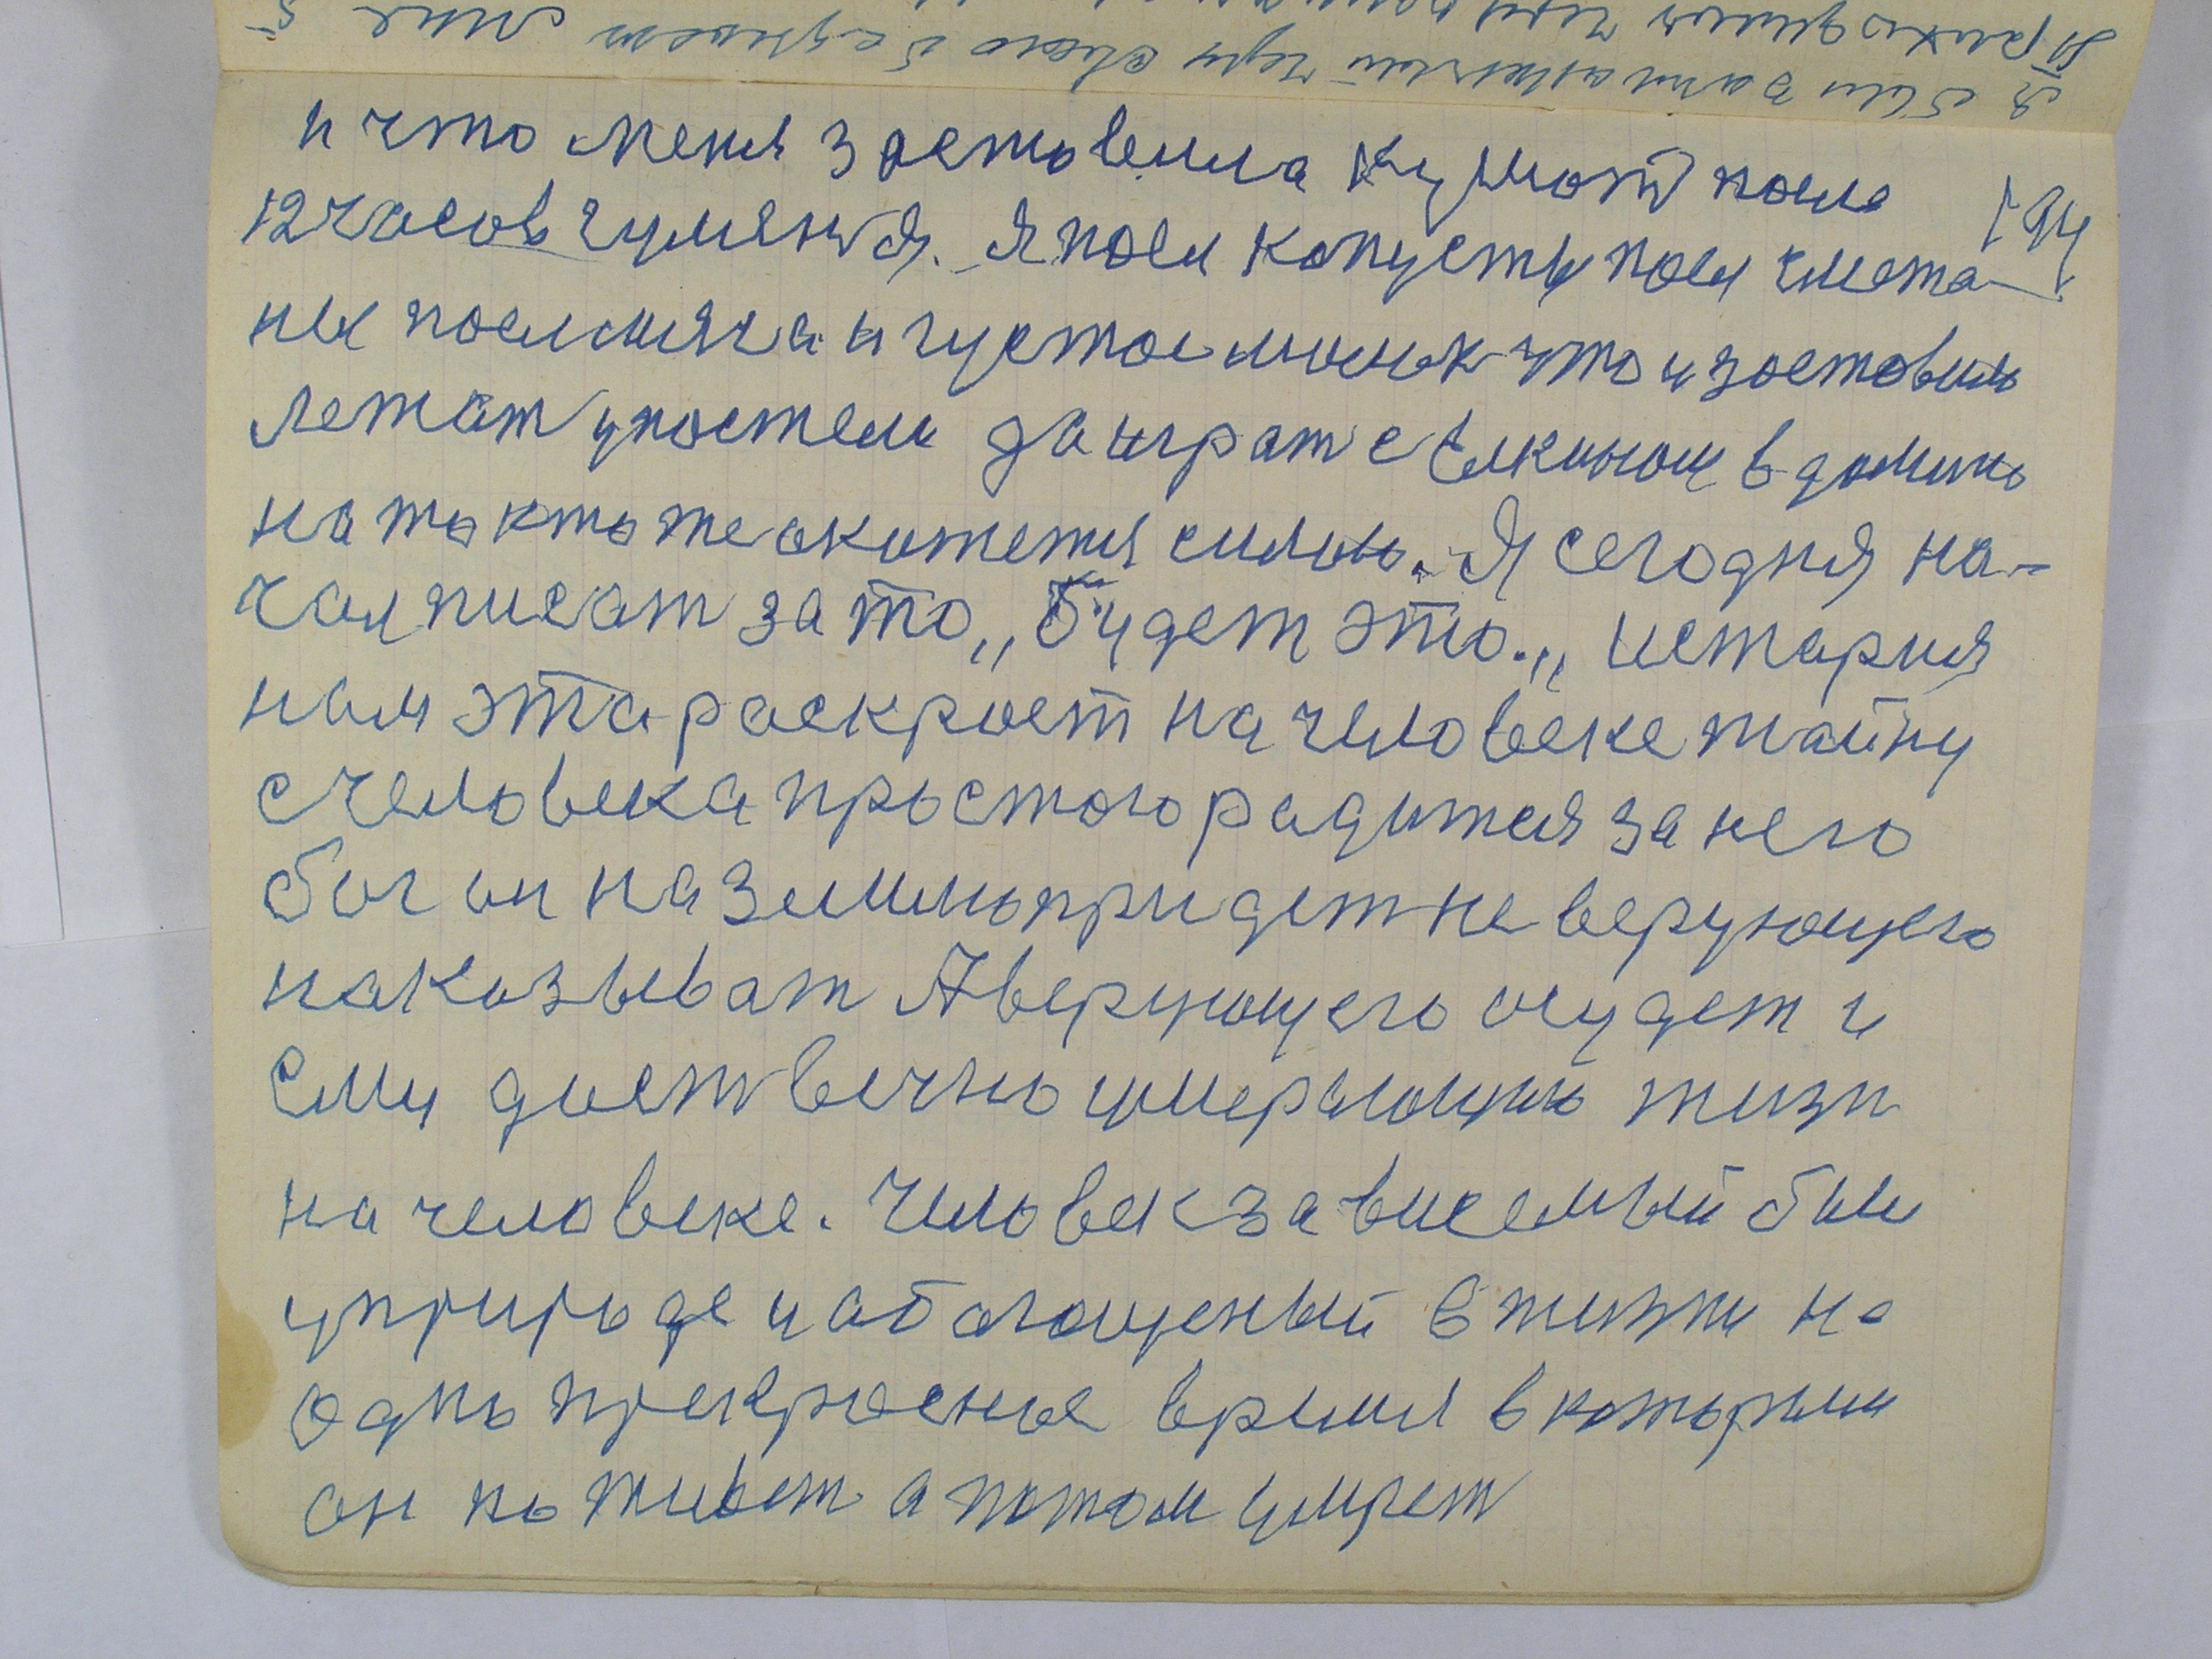 и что меня зоставила кушот после
12 часов гуляня. Я поел капусты поел смета-
ны поел мяса и густое мочок что и зоставило
лежат упостели да играт с Елкиною в домино
на то кто же окажется силою. Я сегодня на-
чал писат за то „Будет это.„ история
нам эта роскроет на человеке тайну
с человека простого родится за него
бог он на землю придет не верующего
наказыват А верующего осудет и
ему дает вечно умерающию жизн
на человеке. Человек зависемый был
уприроде и абогощеный в жизни на
одно прекрасное время в котором
он поживет а потом умрет